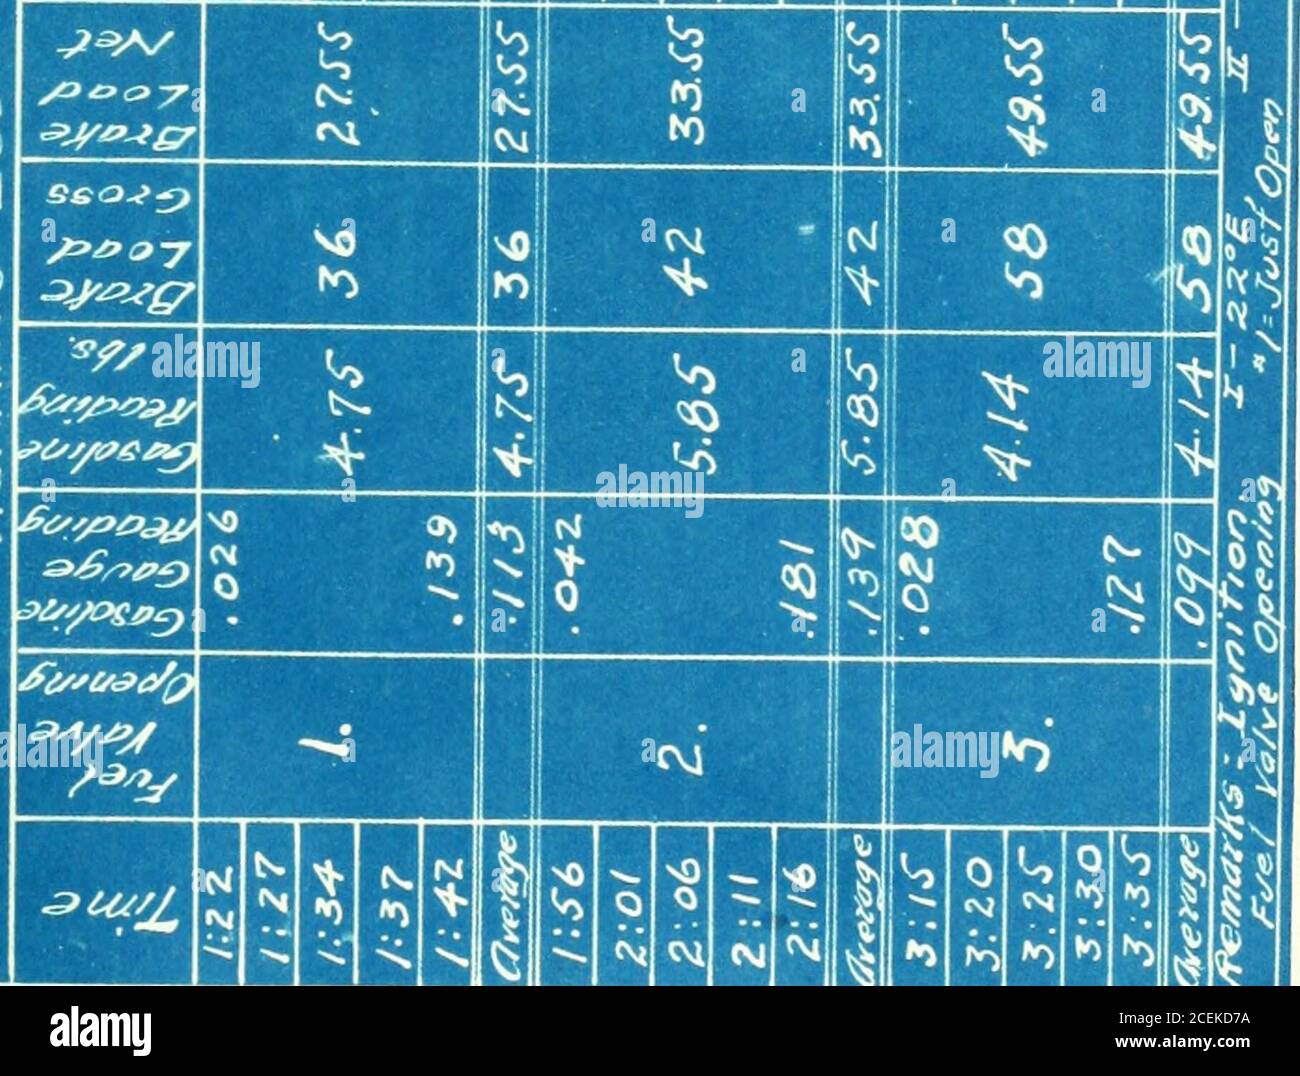 Time | Fuel Valve Opening | Gasoline Gauge Reading | Gasoline Reading lbs. | Brake Load Gross | Brake Load Net
1:22 | | .026
1:27
1:34 | 1. | | 4.75 | 36 | 27.55
1:37
1:42 | | .139
Average | | .113 | 4.75 | 36 | 27.55
1:56 | | .042
2:01
2:06 | 2. | | 5.85 | 42 | 33.55
2:11
2:16 | | .181
Average | | .139 | 5.85 | 42 | 33.55
3:15 | | .028
3:20
3:25 | 3. | | 4.14 | 58 | 49.55
3:30
3:35 | | .127
Average | | .099 | 4.14 | 58 | 49.55
Remarks:- Ignition I - 22°E II -
Fuel Valve Opening #1 = Just Open
alamy
Image ID: 2CEKD7A
www.alamy.com